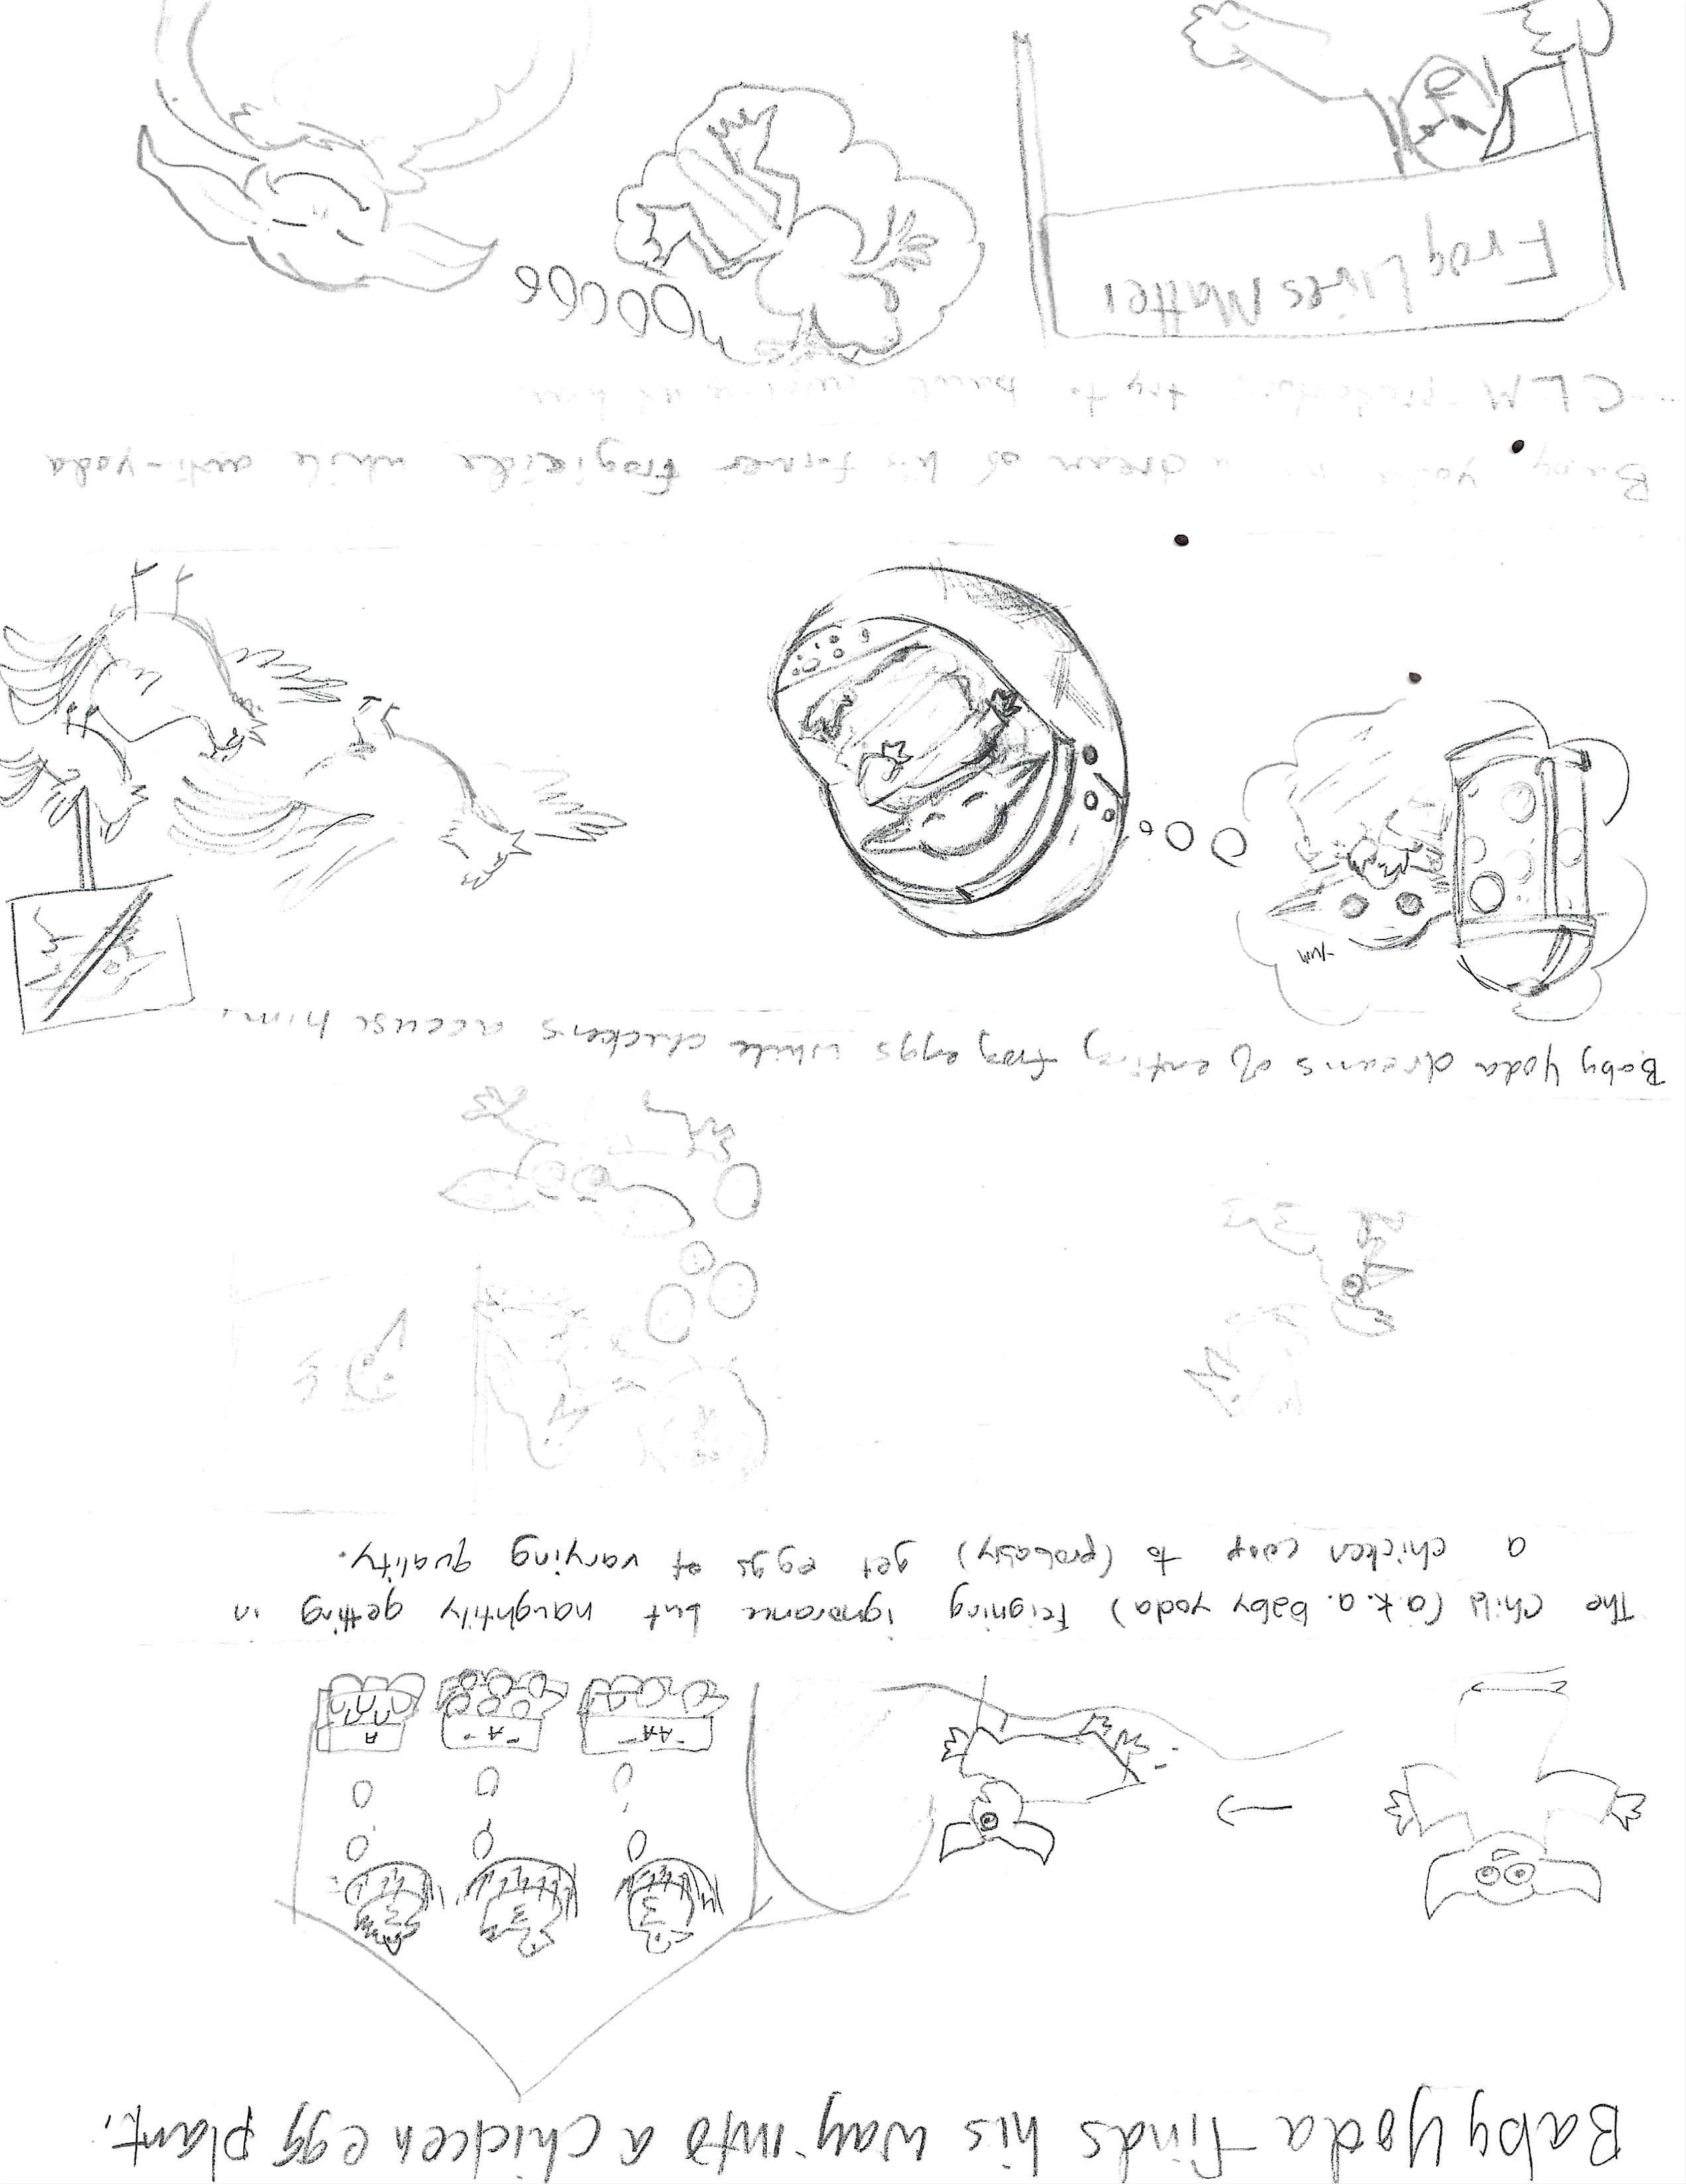 Baby Yoda finds his way into a chicken egg plant.
-AA- -A- A
The Child (a.k.a. baby yoda) feigning ignorance but naughtily getting in
a chicken coop to (probably) get eggs of varying quality.
Baby Yoda dreams of eating frog eggs while chickens accuse him.
yum
Baby yoda a dream of his former frogicide while anti-yoda
CLM try to at him
Frog Lives Matter